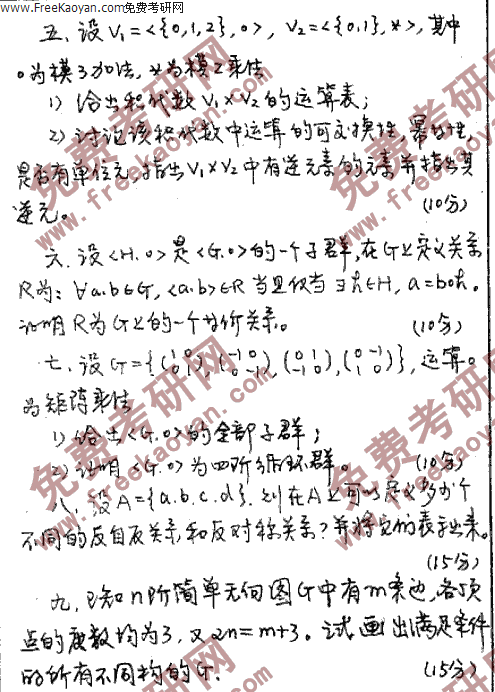 www.FreeKaoyan.com免费考研网
五、设 V₁=<{0,1,2},o>, V₂=<{0,1},*>, 其中
o为模3加法, *为模2乘法
1) 给出积代数 V₁×V₂的运算表;
2) 讨论该积代数中运算的可交换性, 幂等性,
是否有单位元, 指出V₁×V₂中有逆元素的元素并指出其
逆元。 (10分)
六、设<H,o>是<G,o>的一个子群, 在G上定义关系
R为: ∀a,b∈G, <a,b>∈R 当且仅当 ∃h∈H, a=boh.
证明R为G上的一个等价关系。 (10分)
七、设G={(1 0 0 1), (-1 0 0 -1), (0 1 -1 0), (0 -1 1 0)}, 运算o
为矩阵乘法
1) 给出<G,o>的全部子群;
2) 证明<G,o>为四阶循环群。 (10分)
八、设A={a.b.c.d}. 则在A上可以定义多少个
不同的反自反关系和反对称关系? 并将它们表示出来。
(15分)
九、已知n阶简单无向图G中有m条边, 各顶
点的度数均为3, 又2n=m+3。试画出满足条件
的所有不同构的G. (15分)
免费考研网
www.freekaoyan.com
免费考研网
www.freekaoyan.com
免费考研网
www.freekaoyan.com
免费考研网
www.freekaoyan.com